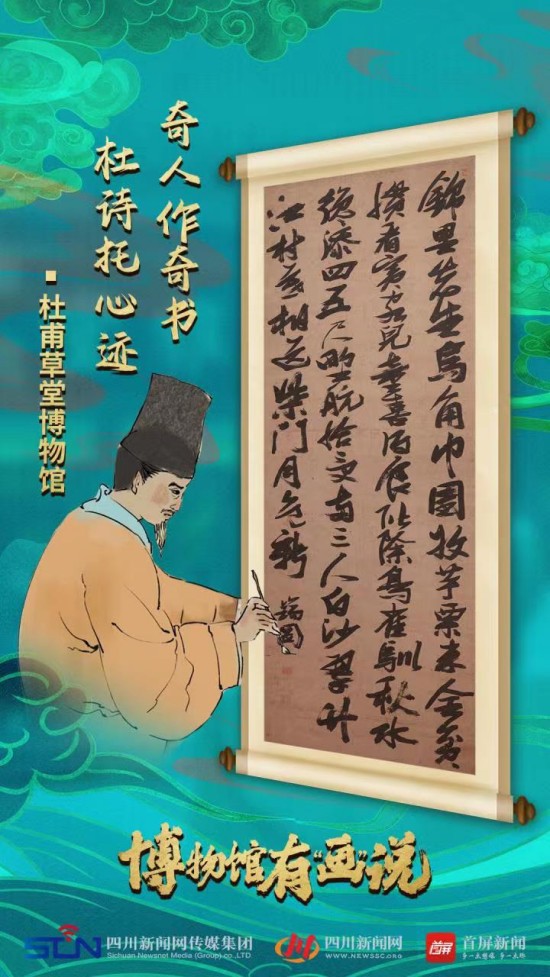 奇人作奇书
杜诗托心迹
杜甫草堂博物馆
錦里先生烏角巾園收芋栗未全貧
慣看賓客兒童喜得食階除鳥雀馴秋水
纔添四五尺野航恰受兩三人白沙翠竹
江村暮相送柴門月色新
瑞圖
博物馆有“画”说
SCN 四川新闻网传媒集团
Sichuan Newsnet Media (Group) co.,LTD
四川新闻网
WWW.NEWSSC.ORG
首屏 首屏新闻
多一点想法 多一点料